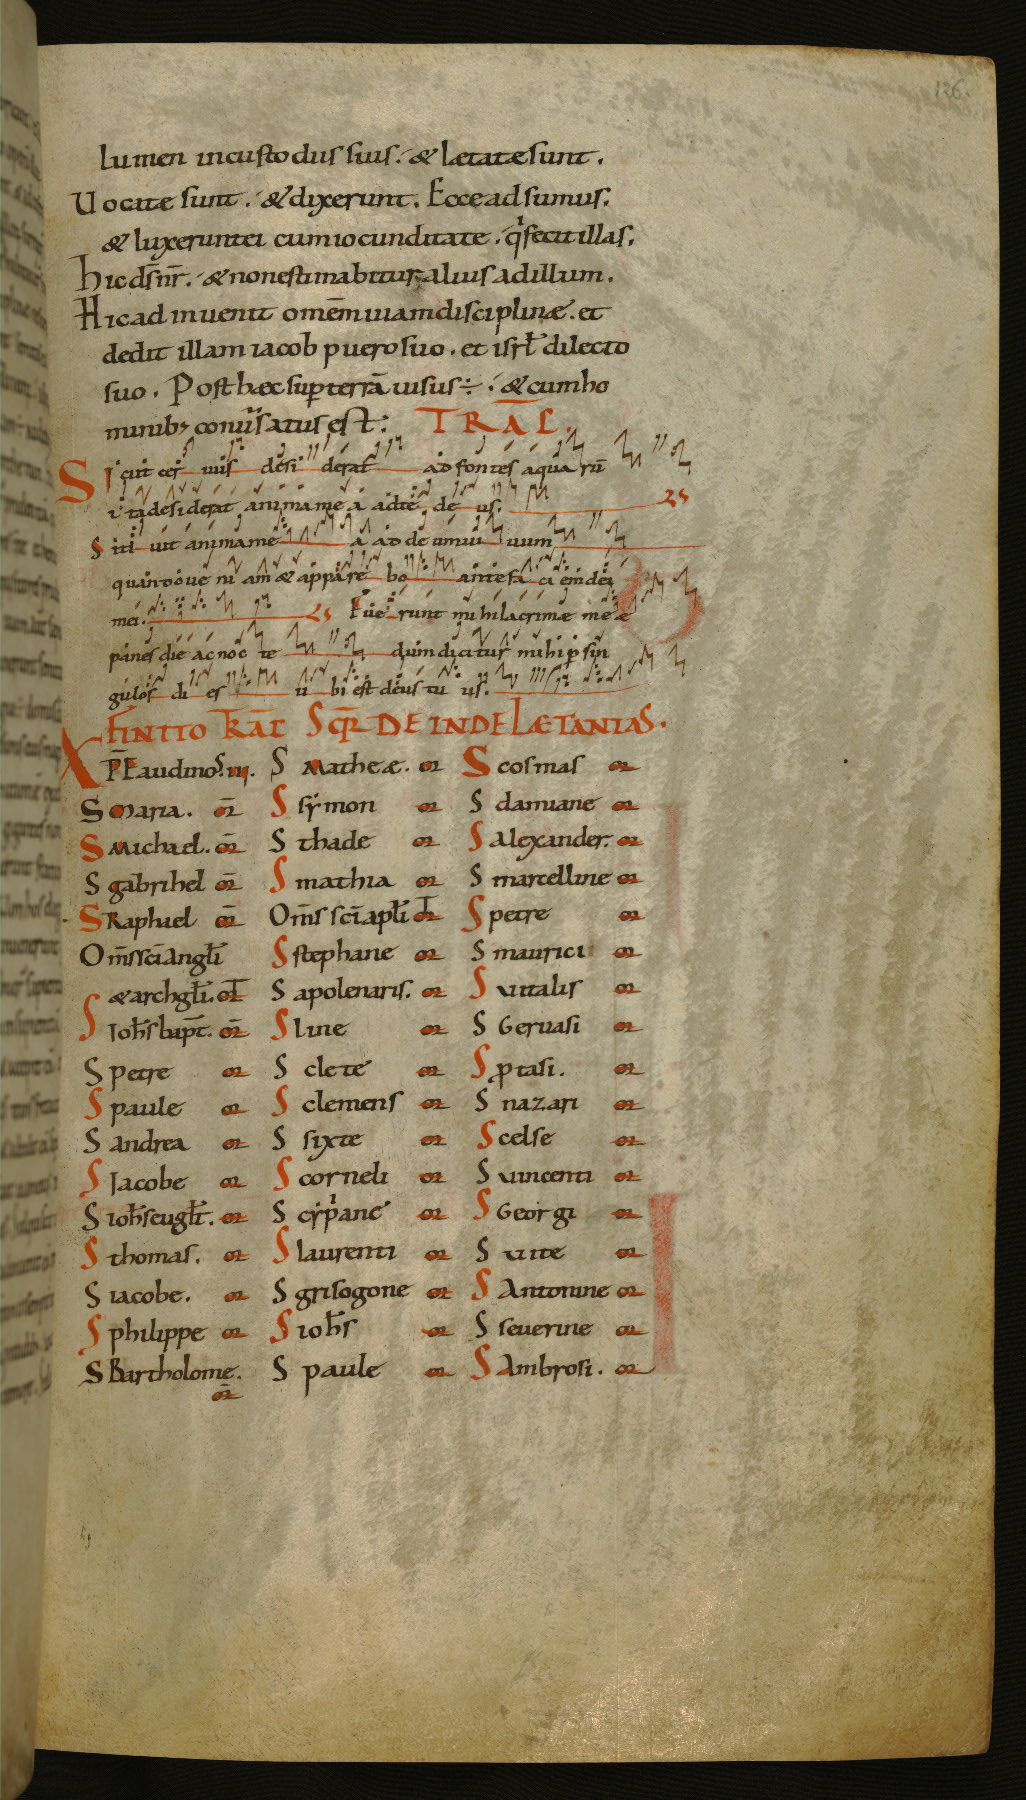 126.
lumen in custodiis suis. & lætatæ sunt.
Vocitæ sunt. & dixerunt. Ecce adsumus.
& luxerunt ei cum iocunditate. q' fecit illas.
hic ds̄ nr̄. & non estimabitur alius ad illum.
Hic adinuenit omēm uiam disciplinæ. et
dedit illam iacob puero suo. et isrl̄ dilecto
suo. Post hæc sup terrā uisus ÷. & cum ho
minib; conuersatus est: TRAC̄.
Sicut ceruus desiderat ad fontes aquarū
ita desiderat anima mea ad te deus.
Sitiuit anima mea ad deum uiuum
quando ueniam & apparebo ante faciem dei
mei. Fuerunt mihi lacrimæ meæ
panes die ac nocte dum dicitur mihi p sin
gulos dies ubi est deus tuus.
FINITO TRAC̄T SCQR̄ DEINDE LÆTANIAS.
XPE audi nos. III. S Matheæ. or S cosmas or
S Maria. or S symon or S damiane or
S Michael. or S thade or S alexander. or
S gabrihel or S mathia or S marcelline or
S Raphael or Om̄s sc̄i apl̄i or S petre or
Om̄s sc̄i angl̄i S stephane or S maurici or
& archgl̄i. or S apolenaris. or S uitalis or
S Ioh̄s bapt̄. or S line or S Geruasi or
S petre or S clete or S ptasi. or
S paule or S clemens or S nazari or
S andrea or S sixte or S celse or
S Iacobe or S corneli or S uincenti or
S ioh̄s eugl̄i. or S cypane or S Georgi or
S thomas. or S laurenti or S uite or
S iacobe. or S grisogone or S Antonine or
S philippe or S ioh̄s or S seuerine or
S Bartholome. or S paule or S Ambrosi. or